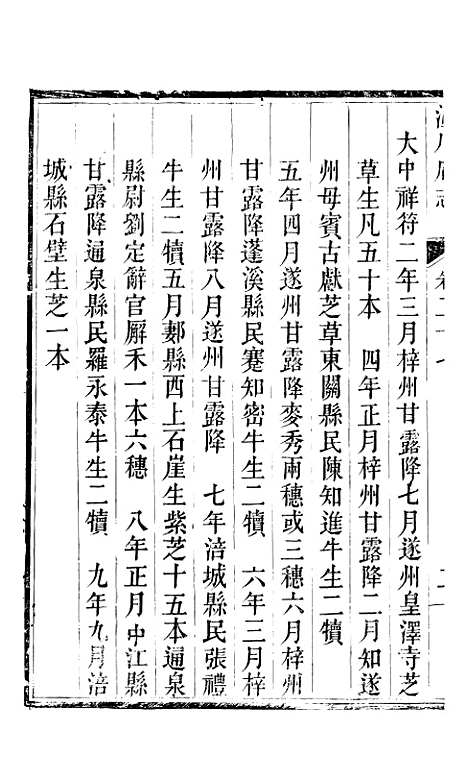 大中祥符二年三月梓州甘露降七月遂州皇澤寺芝
草生凡五十本　四年正月梓州甘露降二月知遂
州毋賓古獻芝草東關縣民陳知進牛生二犢
五年四月遂州甘露降麥秀兩穗或三穗六月梓州
甘露降蓬溪縣民蹇知密牛生二犢　六年三月梓
州甘露降八月遂州甘露降　七年涪城縣民張禮
牛生二犢五月郪縣西上石崖生紫芝十五本通泉
縣尉劉定辭官廨禾一本六穗　八年正月中江縣
甘露降通泉縣民羅永泰牛生二犢　九年九月涪
城縣石壁生芝一本